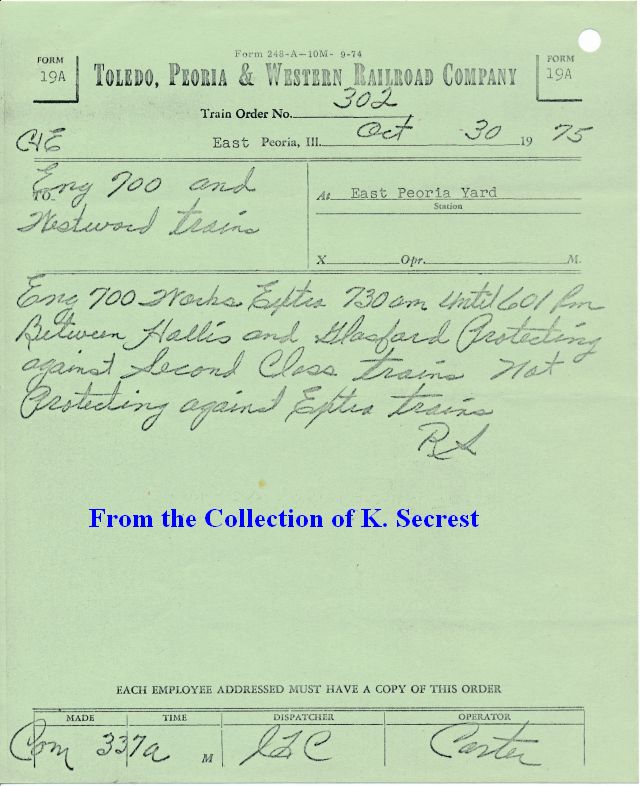 Form 248-A-10M- 9-74
FORM 19A
TOLEDO, PEORIA & WESTERN RAILROAD COMPANY
FORM 19A
Train Order No. 302
C&E
East Peoria, Ill. Oct 30 19 75
TO Eng 700 and
Westword trains
At East Peoria Yard
Station
X Opr. M.
Eng 700 Works Extra 730 am Until 601 Pm
Between Hollis and Glasford Protecting
against Second Class trains Not
Protecting against Extra trains
RS
From the Collection of K. Secrest
EACH EMPLOYEE ADDRESSED MUST HAVE A COPY OF THIS ORDER
MADE TIME DISPATCHER OPERATOR
Com 337a M Carter